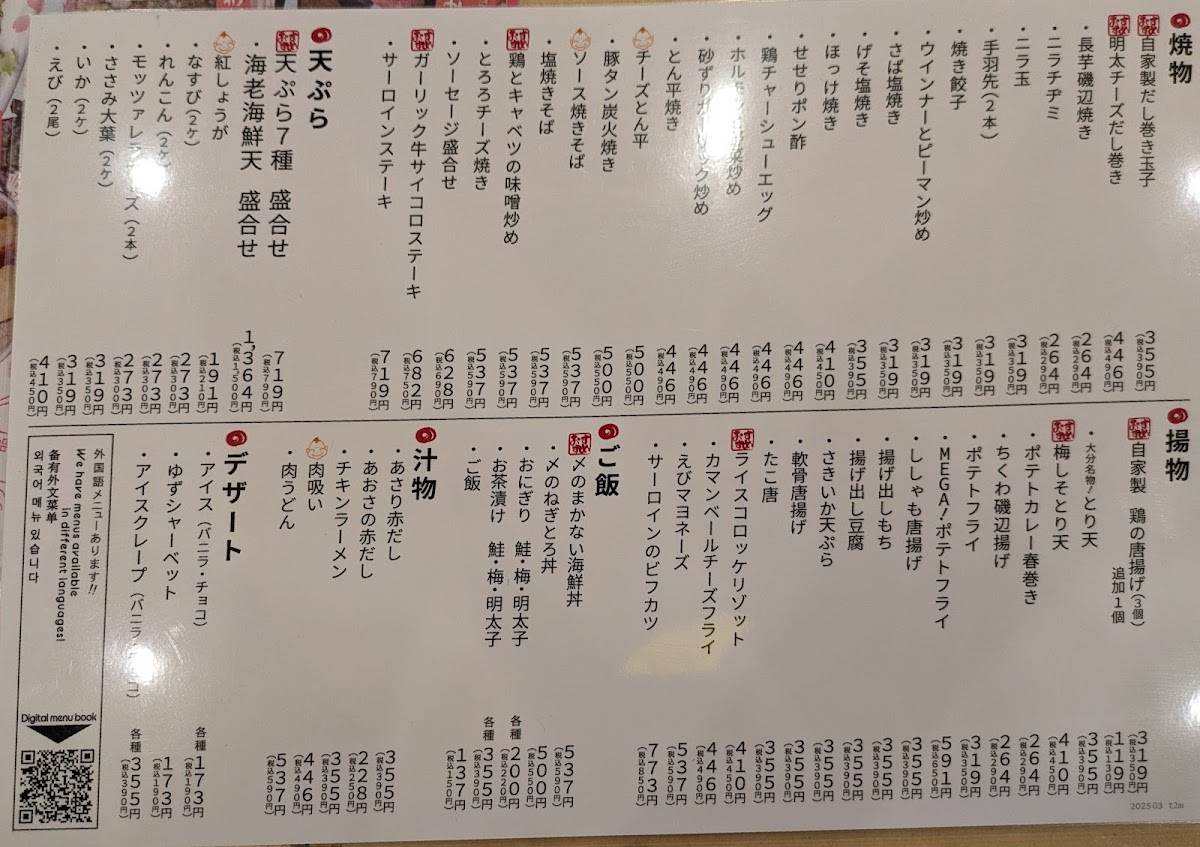 焼物
自家製だし巻き玉子 355円 (税込390円)
明太チーズだし巻き 446円 (税込490円)
・長芋磯辺焼き 264円 (税込290円)
・ニラチヂミ 264円 (税込290円)
・ニラ玉 319円 (税込350円)
・手羽先(2本) 319円 (税込350円)
・焼き餃子 319円 (税込350円)
・ウインナーとピーマン炒め 319円 (税込350円)
・さば塩焼き 319円 (税込350円)
・げそ塩焼き 355円 (税込390円)
・ほっけ焼き 410円 (税込450円)
・せせりポン酢 446円 (税込490円)
・鶏チャーシューエッグ 446円 (税込490円)
・ホル 炒め 446円 (税込490円)
・砂ずりガーリック炒め 446円 (税込490円)
・とん平焼き 446円 (税込490円)
チーズとん平 500円 (税込550円)
・豚タン炭火焼き 500円 (税込550円)
ソース焼きそば 537円 (税込590円)
・塩焼きそば 537円 (税込590円)
鶏とキャベツの味噌炒め 537円 (税込590円)
・とろろチーズ焼き 537円 (税込590円)
・ソーセージ盛合せ 628円 (税込690円)
ガーリック牛サイコロステーキ 682円 (税込750円)
・サーロインステーキ 719円 (税込790円)
天ぷら
天ぷら7種 盛合せ 719円 (税込790円)
・海老海鮮天 盛合せ 1,364円 (税込1,500円)
紅しょうが 191円 (税込210円)
・なすび(2ケ) 273円 (税込300円)
・れんこん(2ケ) 273円 (税込300円)
・モッツァレラチーズ(2本) 273円 (税込300円)
・ささみ大葉(2ケ) 319円 (税込350円)
・いか(2ケ) 319円 (税込350円)
・えび(2尾) 410円 (税込450円)
揚物
自家製 鶏の唐揚げ(3個) 319円 (税込350円)
追加1個 119円 (税込130円)
・大分名物!とり天 355円 (税込390円)
梅しそとり天 410円 (税込450円)
・ポテトカレー春巻き 264円 (税込290円)
・ちくわ磯辺揚げ 264円 (税込290円)
・ポテトフライ 319円 (税込350円)
・MEGA!ポテトフライ 591円 (税込650円)
・ししゃも唐揚げ 355円 (税込390円)
・揚げ出しもち 355円 (税込390円)
・揚げ出し豆腐 355円 (税込390円)
・さきいか天ぷら 355円 (税込390円)
・軟骨唐揚げ 355円 (税込390円)
・たこ唐 355円 (税込390円)
ライスコロッケリゾット 410円 (税込450円)
・カマンベールチーズフライ 446円 (税込490円)
・えびマヨネーズ 537円 (税込590円)
・サーロインのビフカツ 773円 (税込850円)
ご飯
〆のまかない海鮮丼 537円 (税込590円)
・〆のねぎとろ丼 500円 (税込550円)
・おにぎり 鮭・梅・明太子 各種 200円 (税込220円)
・お茶漬け 鮭・梅・明太子 各種 355円 (税込390円)
・ご飯 137円 (税込150円)
汁物
・あさり赤だし 355円 (税込390円)
・あおさの赤だし 228円 (税込250円)
・チキンラーメン 355円 (税込390円)
肉吸い 446円 (税込490円)
・肉うどん 537円 (税込590円)
デザート
・アイス(バニラ・チョコ) 各種 173円 (税込190円)
・ゆずシャーベット 173円 (税込190円)
・アイスクレープ(バニラ コ) 各種 355円 (税込390円)
外国語メニューあります!!
We have menus available
in different languages!
备有外文菜单
외국어 메뉴 있습니다
Digital menu book
2025 03 t2m